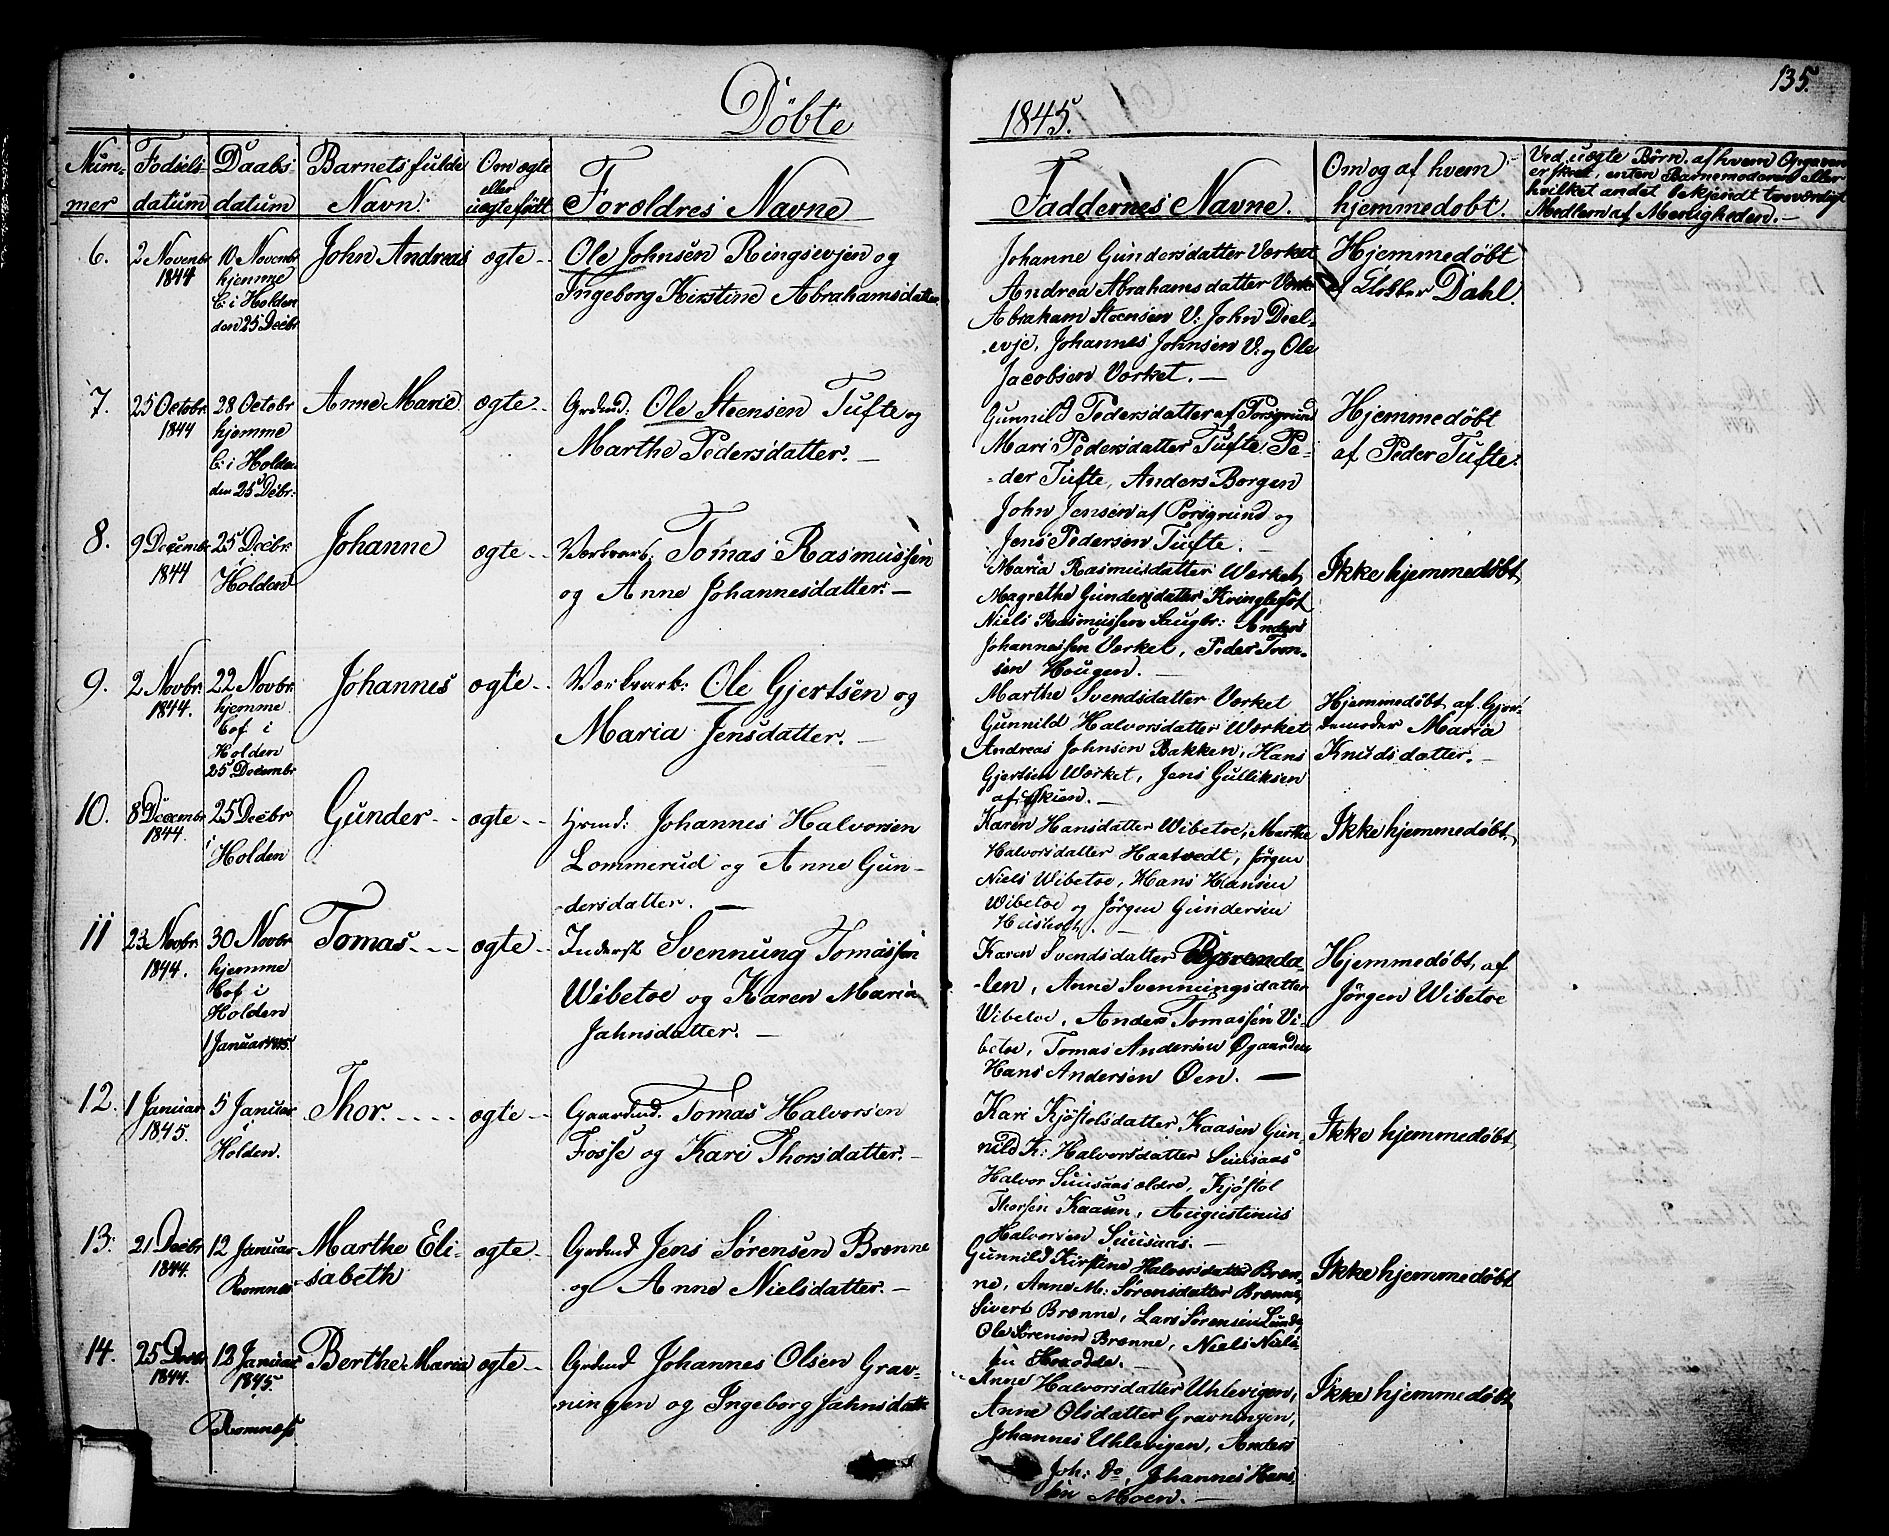 Döbte
1845.
135.
Num-
mer
Fødsels
datum
Daabs
datum
Barnets fulde
Navn.
Om ægte
eller
uægte født
Forældres Navne
Faddernes Navne.
Om og af hvem
hjemmedøbt.
Ved uægte Börn, af hvem Opgaven
er skeet, enten Barnemoderen eller
hvilket andet bekjendt troværdigt
Medlem af Menigheden. —
6.
2 Novenbr
1844
10 Novenb
hjemme
b: i Holden
den 25 Decbr
John Andreas
ægte -
Ole Johnsen Ringsevjen og
Ingeborg Kirstine Abrahamsdatter
Johanne Gundersdatter Værket
Andrea Abrahamsdatter Værk
Abraham Steensen V: John Deel-
evje, Johannes Johnsen V: og Ole
Jacobsen Værket. —
Hjemmedøbt
af Klokker Dahl.
7.
25 Octobr
1844
28 Octobr
hjemme
b: i Holden
den 25 Debr:
Anne Marie
ægte -
Grdmd: Ole Steensen Tufte og
Marthe Pedersdatter. —
Gunnild Pedersdatter af Porsgrund
Mari Pedersdatter Tufte, Pe-
der Tufte, Anders Borgen
John Jensen af Porsgrund og
Jens Pedersen Tufte. —
Hjemmedøbt
af Peder Tufte.
8.
9 Decembr
1844
25 Decbr:
i
Holden
Johanne
ægte -
Værksarb: Tomas Rasmussen
og Anne Johannesdatter. —
Maria Rasmusdatter Værket,
Magrethe Gundersdatter Kringlefot
Niels Rasmussen Saugbr: Anders
Johannessen Værket, Peder Tron-
sen Hougen. —
Ikke hjemmedøbt,
9.
2 Novbr.
1844.
22 Novbr.
hjemme
Cof i
Holden
25 Decembr
Johannes
ægte -
Værksarb: Ole Gjertsen og
Maria Jensdatter. —
Marthe Svendsdatter Værket
Gunnild Halvorsdatter Værket
Andreas Johnsen Bakken, Hans
Gjertsen Værket, Jens Gulliksen
af Skien. —
Hjemmedøbt, af Gjor-
demoder Maria
Knudsdatter. —
10.
8 Decembr
1844.
25 Decbr
i
Holden
Gunder
ægte -
Hmd: Johannes Halvorsen
Lommerud og Anne Gun-
dersdatter. —
Karen Hansdatter Wibetoe, Marthe
Halvorsdatter Haatvedt, Jørgen
Niels Wibetoe, Hans Hansen
Wibetoe og Jörgen Gundersen
Ikke hjemmedøbt,
11
23 Novbr.
1844.
30 Novbr
hjemme
Cof i
Holden
1 Januar 1845.
Tomas
ægte -
Inderst Svennung Tomassen
Wibetoe og Karen Maria
Jahnsdatter. —
Karen Svendsdatter Byrenda-
len, Anne Svennungsdatter
Wibetoe, Anders Tomassen Vi-
betoe, Tomas Andersen Øgaarden
Hans Andersen Øen. —
Hjemmedøbt, af
Jörgen Wibetoe
12.
1 Januar
1845.
5 Januar
i
Holden.
Thor.
ægte -
Gaardmd. Tomas Halvorsen
Fosse og Kari Thorsdatter. -
Kari Kjøstolsdatter Kaasen Gun-
nild K: Halvorsdatter Suusaas
Halvor Suusaas ældre, Kjøstol
Thorsen Kaasen, Augustinus
Halvorsen Suusaas. —
Ikke hjemmedøbt,
13.
21 Decbr
1844.
12 Januar
Romnæs
Marthe Eli-
sabeth
ægte -
Grdmd Jens Sørensen Brønne
og Anne Nielsdatter. —
Gunnild Kirstine Halvorsdatter Brøn-
ne, Anne M: Sørensdatter Brønne,
Sivert Brønne, Lars Sørensen Lunde
Ole Sørensen Brønne, Niels Niel-
sen
Ikke hjemmedøbt
14.
25 Decbr
1844.
12 Januar
1845.
Romnæss
Berthe Maria
ægte -
Grdmd Johannes Olsen Grav-
ningen og Ingeborg Jahnsdatt
Anne Halvorsdatter Uhlevigen,
Anne Olsdatter Gravningen,
Johannes Uhlevigen, Anders
Joh: do, Johannes Han-
sen Moen. —
Ikke hjemmedøbt